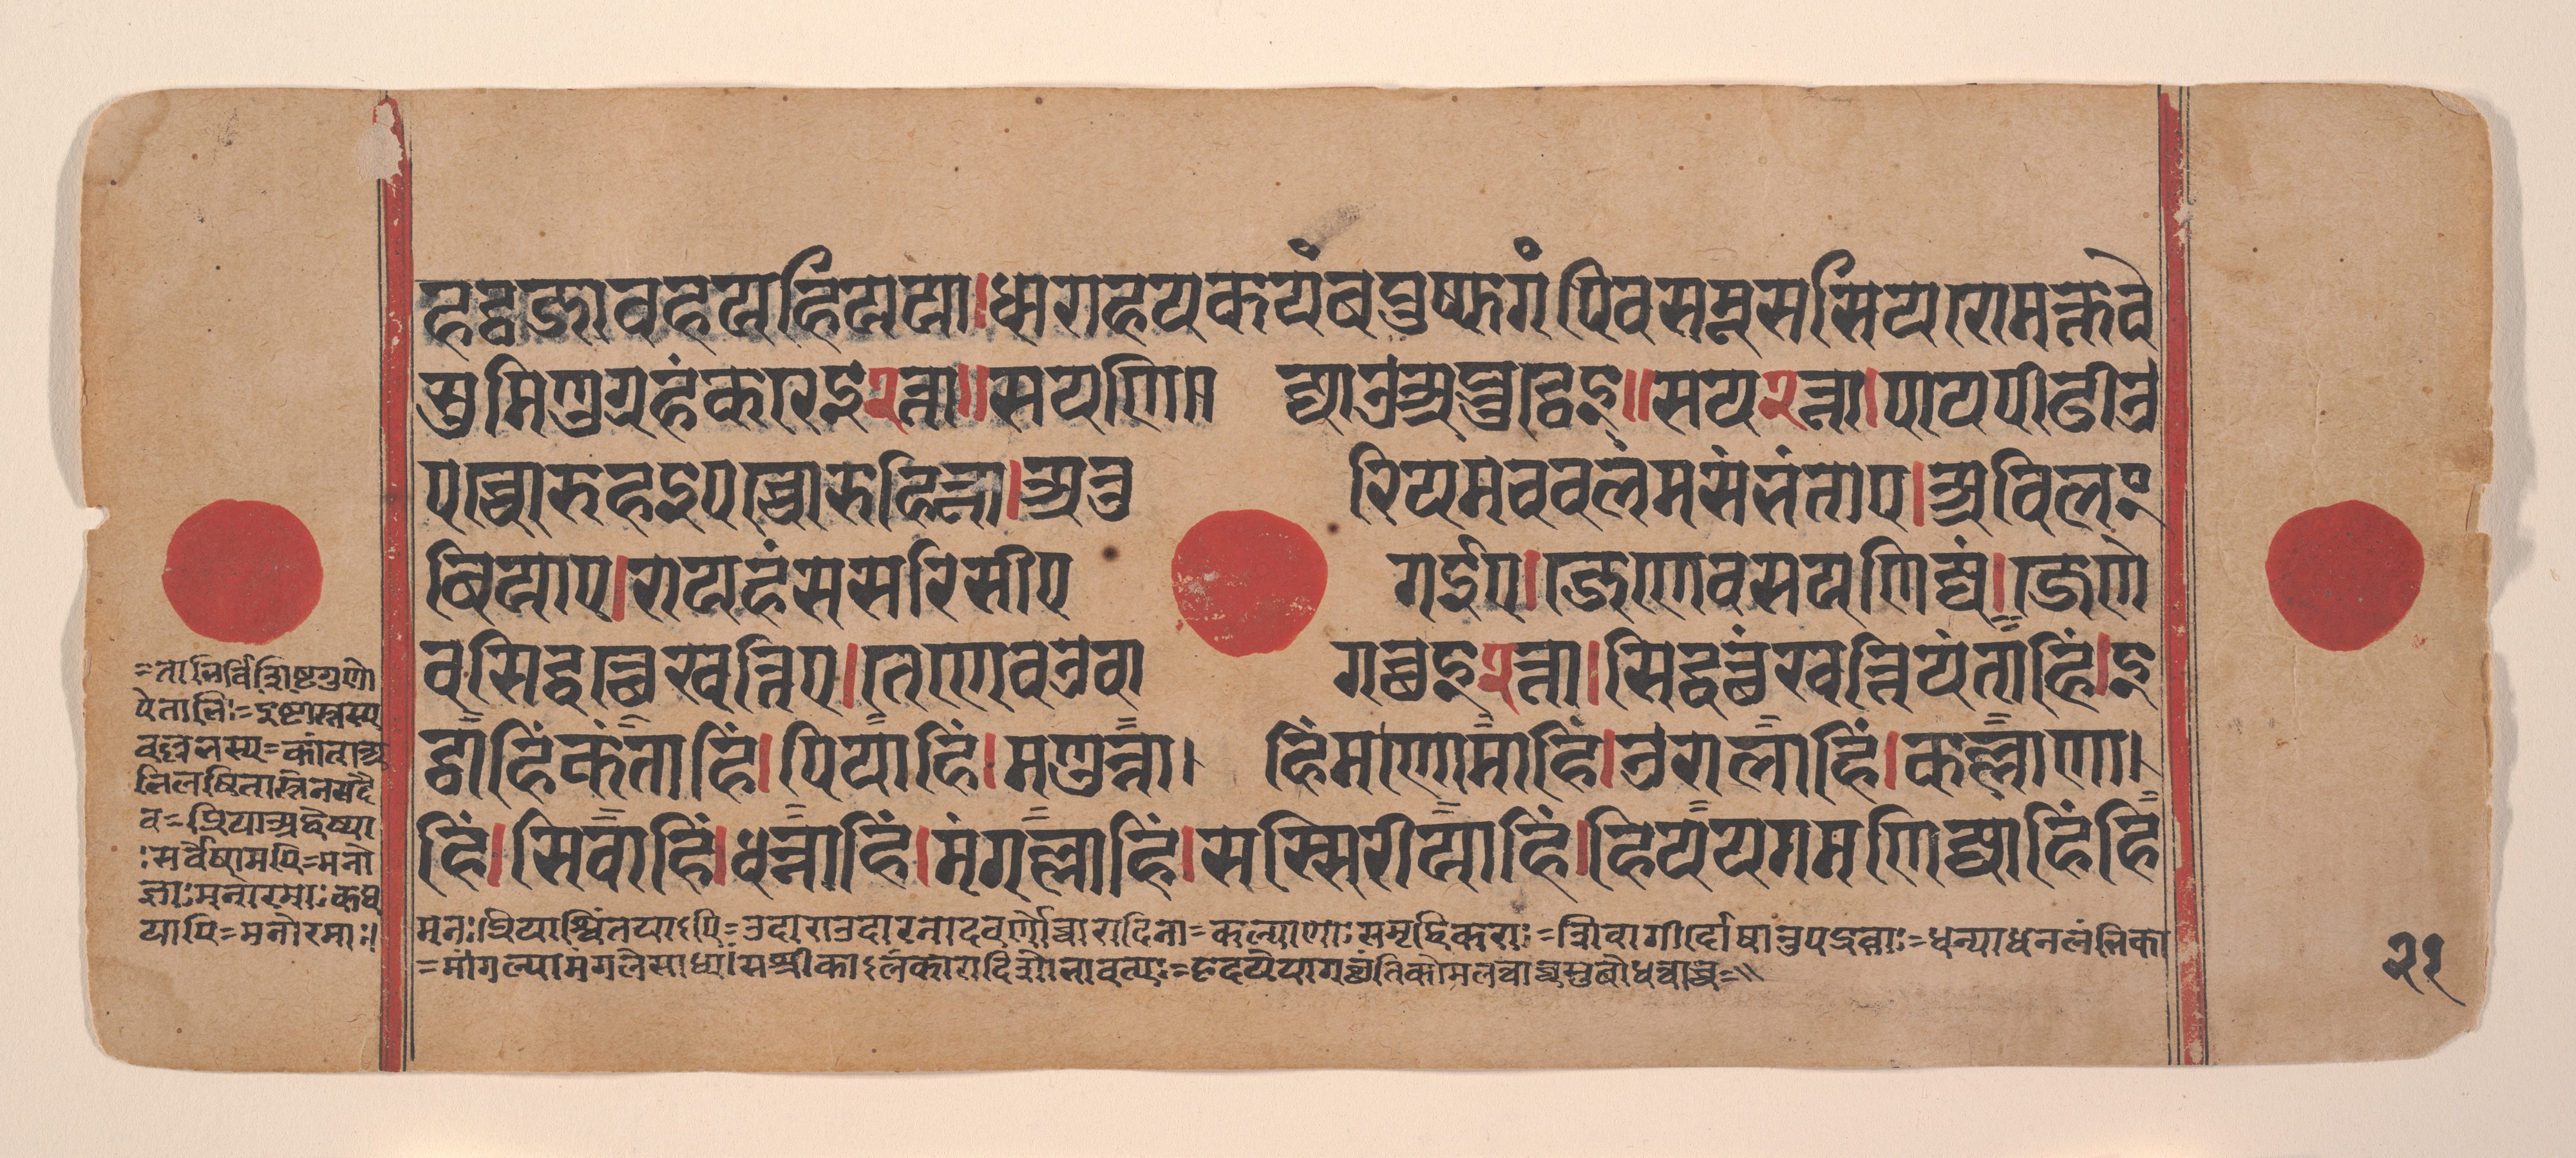 हट्ठजावहयहियया।धाराहयकयंबपुप्फगंपिवसमूससियरोमकूवे
सुमिणुग्गहंकरेइ२त्ता॥सयणिज्जाउअब्भुट्ठेइ॥सय२त्ता।पायपीढाउ
पच्चोरुहइपच्चोरुहित्ता।अतुरियमचवलमसंभंताए।अविलं
बियाए।रायहंससरिसीएगईए।जेणेवसयणिज्जं।जेणे
वसिद्धत्थेखत्तिए।तेणेवउवागच्छइ२त्ता।सिद्धत्थंखत्तियंताहिं।इ
ट्ठाहिंकंताहिं।पियाहिं।मणुन्नाहिंमणोमाहिं।उरालाहिं।कल्लाणा
हिं।सिवाहिं।धन्नाहिं।मंगल्लाहिं।सस्सिरीयाहिं।हिययगमणिज्जाहिंहि
=ताभिर्विशिष्टगुणो
पेताभिः=इष्टास्तस्य
वल्लभस्य=कांताअ
भिलषितास्तेनसदै
व=प्रियाअद्वेष्या
ःसर्वेषामपि=मनो
ज्ञाःमनोरमाःकथ
यापि=मनोरमाः।
मनःप्रियाश्चिंतयाऽपि=उदाराउदारनादवर्णोच्चारादिना=कल्याणाःसमृद्धिकराः=शिवागीर्दोषानुपद्रुताः=धन्याधनलंभिका
=मांगल्यामंगलेसाध्यःसश्रीकाऽलंकारादिशोभावत्यः=हृदयेयागच्छंतिकोमलत्वाच्चसुबोधत्वाच्च=॥
२१